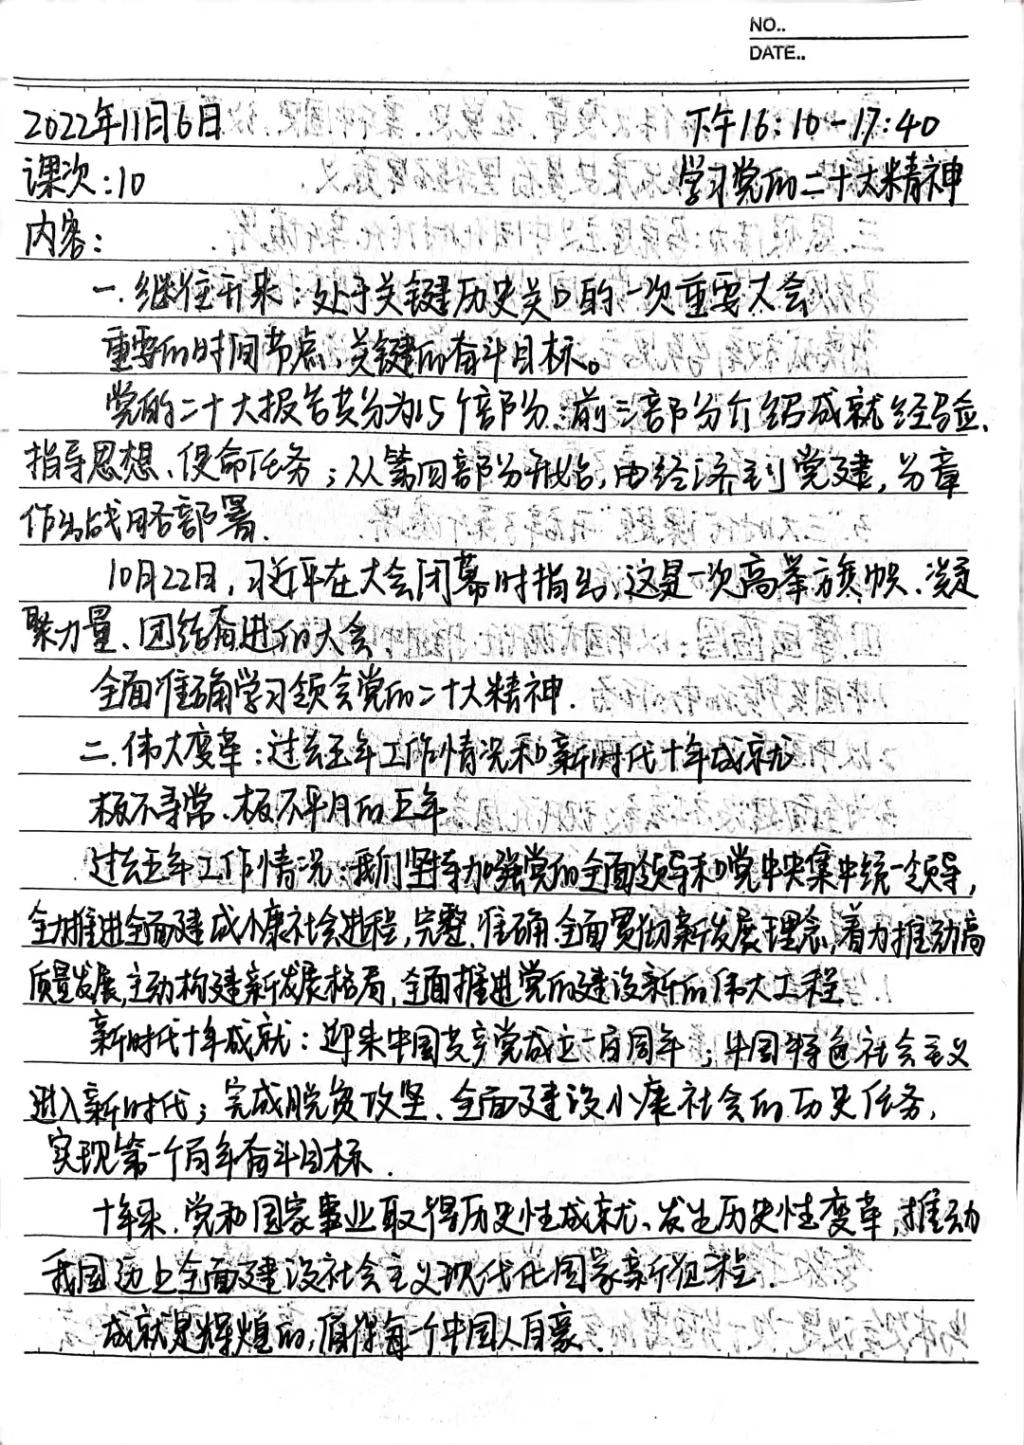 NO..
DATE..
2022年11月6日 下午16:10-17:40
课次:10 学习党的二十大精神
内容:
一.继往开来:处于关键历史关口的一次重要大会
重要的时间节点,关键的奋斗目标。
党的二十大报告共分为15个部分:前三部分介绍成就经验、
指导思想、使命任务;从第四部分开始,由经济到党建,分章
作出战略部署.
10月22日,习近平在大会闭幕时指出,这是一次高举旗帜、凝
聚力量、团结奋进的大会
全面准确学习领会党的二十大精神.
二.伟大变革:过去五年工作情况和新时代十年成就
极不寻常、极不平凡的五年
过去五年工作情况:我们坚持加强党的全面领导和党中央集中统一领导,
全力推进全面建成小康社会进程,完整、准确、全面贯彻新发展理念,着力推动高
质量发展,主动构建新发展格局,全面推进党的建设新的伟大工程
新时代十年成就:迎来中国共产党成立一百周年;中国特色社会主义
进入新时代;完成脱贫攻坚、全面建设小康社会的历史任务,
实现第一个百年奋斗目标.
十年来,党和国家事业取得历史性成就、发生历史性变革,推动
我国迈上全面建设社会主义现代化国家新征程.
成就是辉煌的,值得每一个中国人自豪.